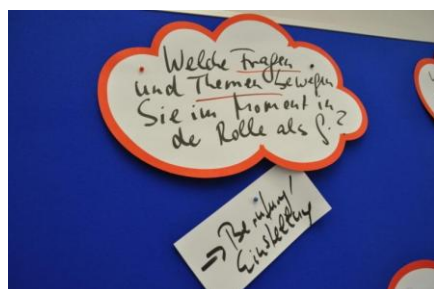 Welche Fragen
und Themen bewegen
Sie im Moment in
de Rolle als
→ Berufung/
Einstellung